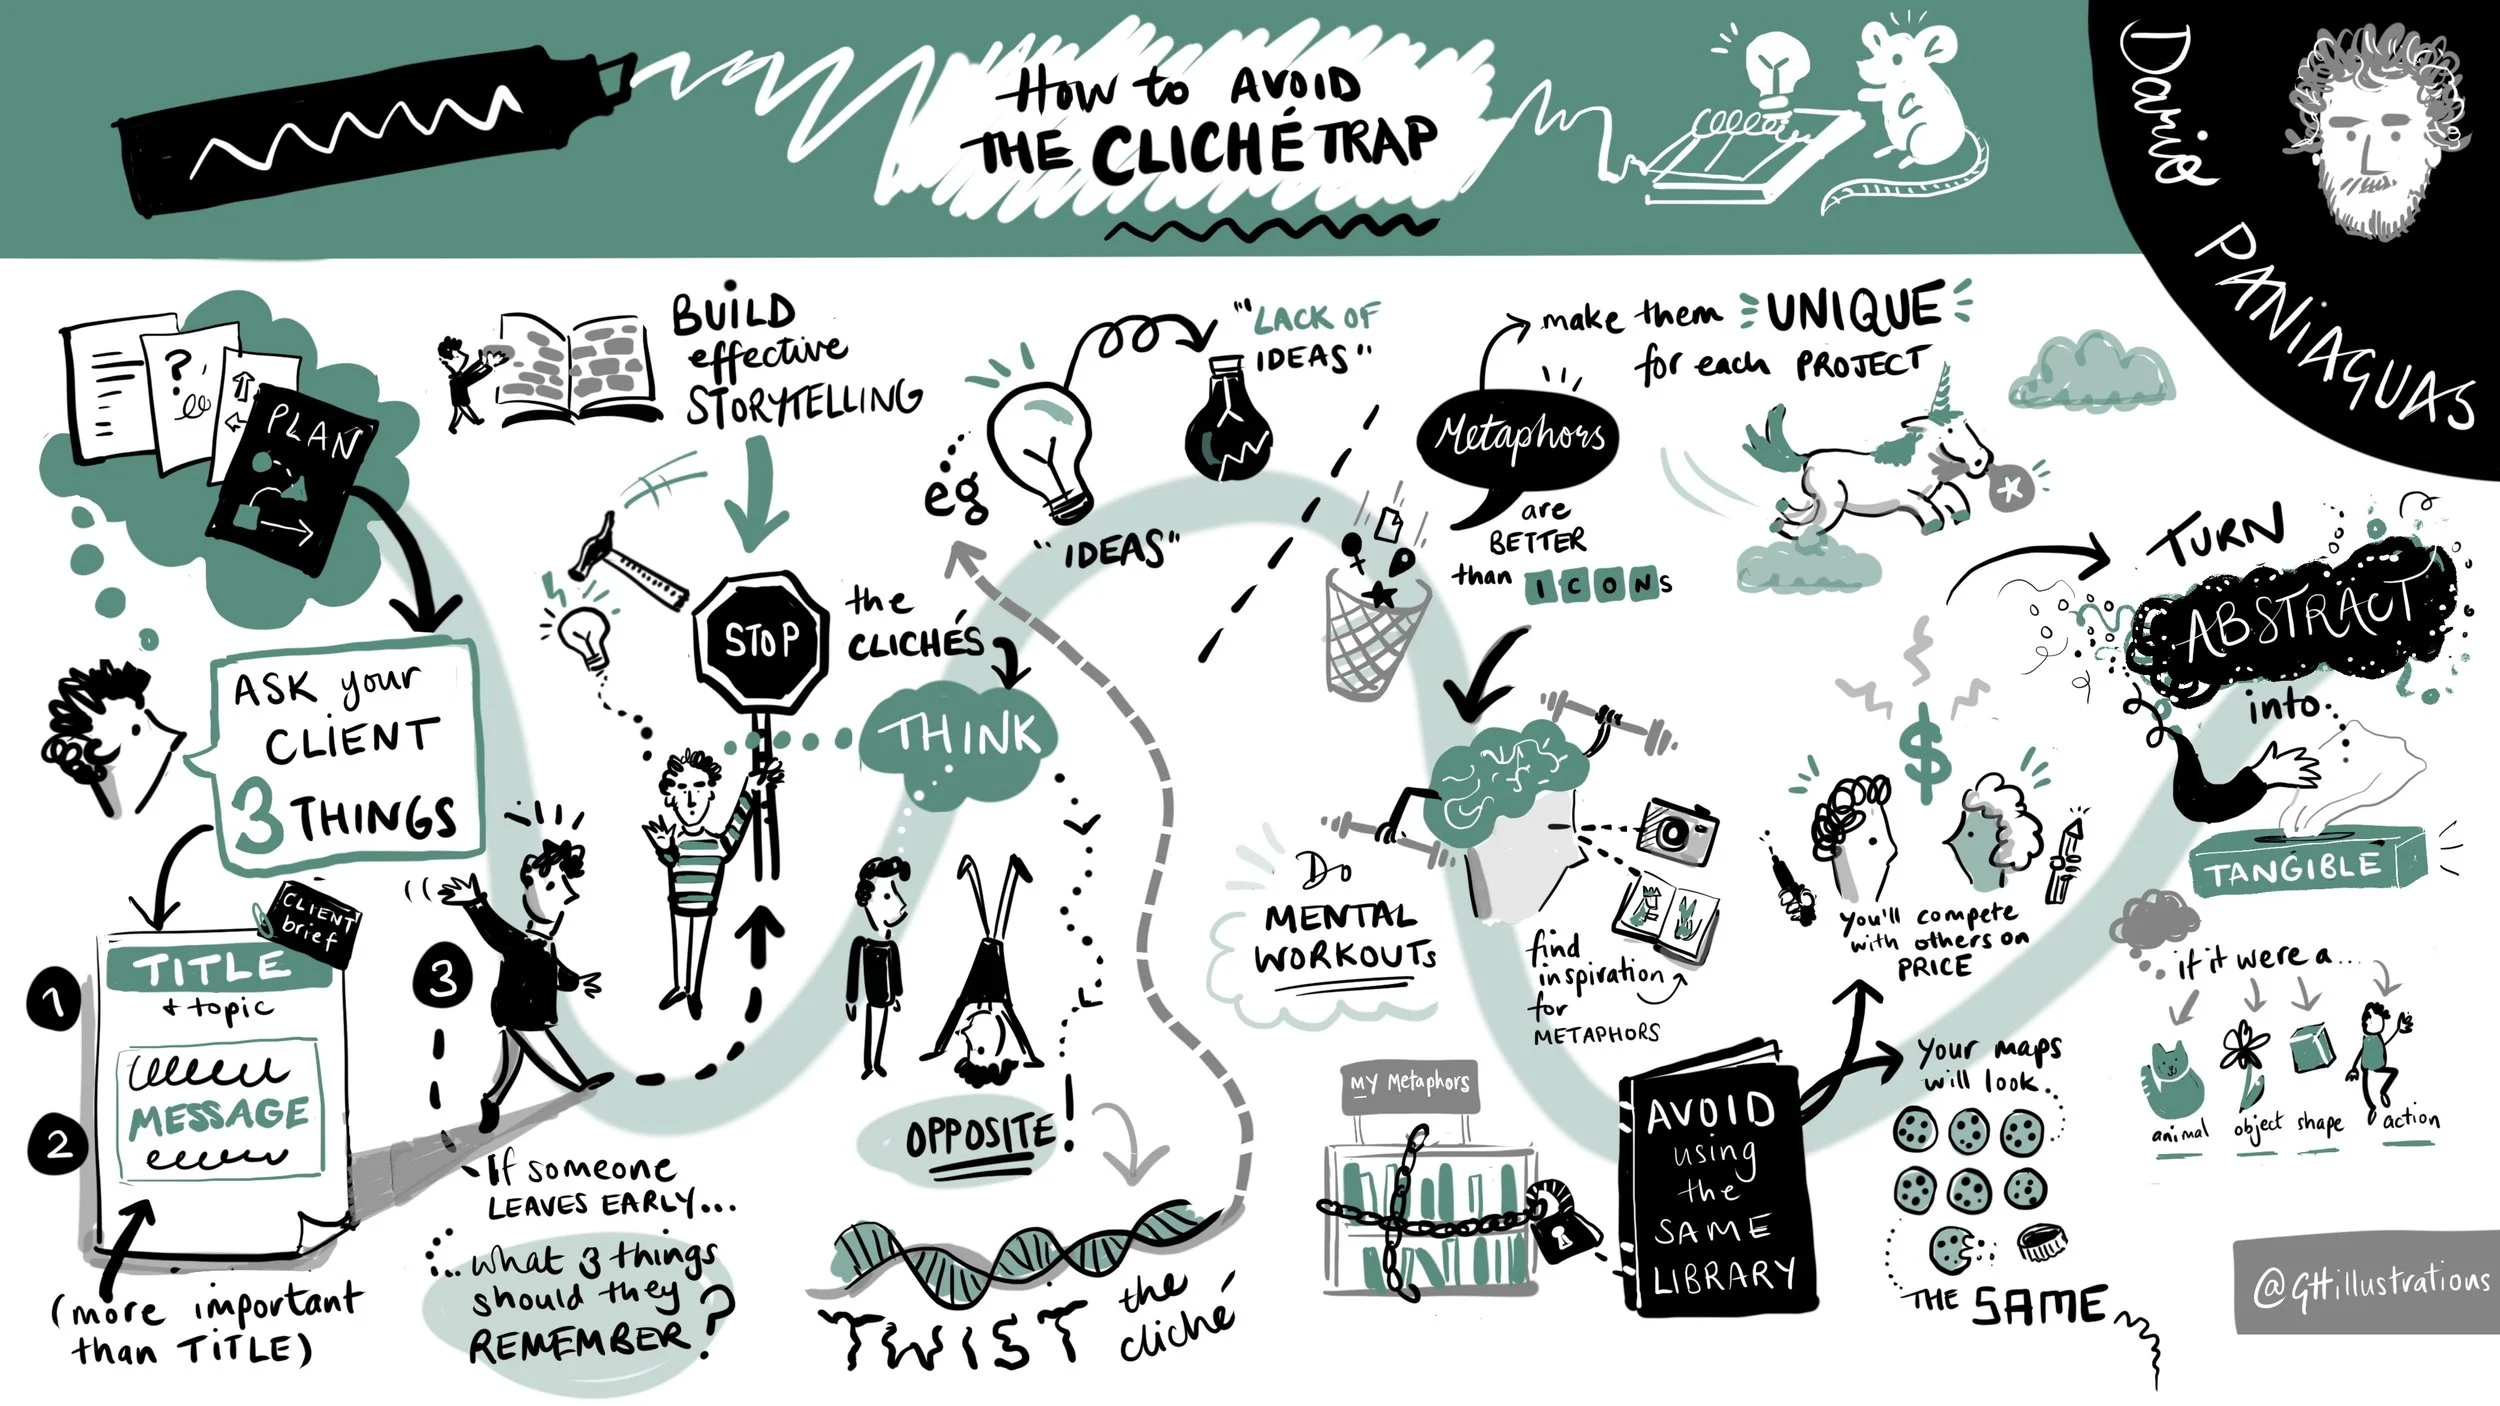 How to AVOID
THE CLICHÉ TRAP
Dario PANIAGUAS
?
PLAN
ASK your
CLIENT
3 THINGS
CLIENT
brief
1
TITLE
+ topic
2
MESSAGE
(more important
than TITLE)
3
If someone
LEAVES EARLY...
... what 3 things
should they
REMEMBER?
BUILD
effective
STORYTELLING
STOP
the
CLICHÉS
THINK
OPPOSITE!
TWIST
the
cliché
eg
"IDEAS"
"LACK OF
IDEAS"
Metaphors
make them UNIQUE
for each PROJECT
are
BETTER
than ICONS
Do
MENTAL
WORKOUTS
find
inspiration
for
METAPHORS
MY Metaphors
AVOID
using
the
SAME
LIBRARY
$
You'll compete
with others on
PRICE
Your maps
will look
THE SAME
TURN
ABSTRACT
into
TANGIBLE
if it were a...
animal
object
shape
action
@GHillustrations